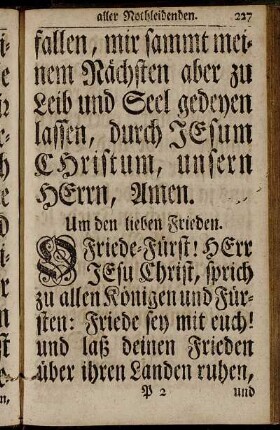 aller Nothleidenden. 227
fallen, mir sammt mei-
nem Nächsten aber zu
Leib und Seel gedeyen
lassen, durch JEsum
CHristum, unsern
HErrn, Amen.
Um den lieben Frieden.
O Friede-Fürst! HErr
JEsu Christ, sprich
zu allen Königen und Für-
sten: Friede sey mit euch!
und laß deinen Frieden
über ihren Landen ruhen,
P 2 und